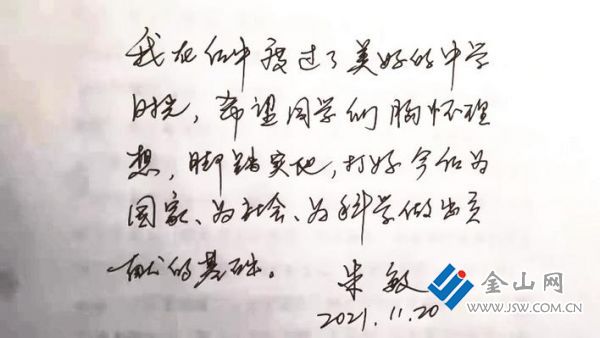 我在仪中度过了美好的中学
时光，希望同学们胸怀理
想，脚踏实地，打好今后为
国家、为社会、为科学做出贡
献的基础。
朱敏
2021.11.20
金山网
WWW.JSW.COM.CN